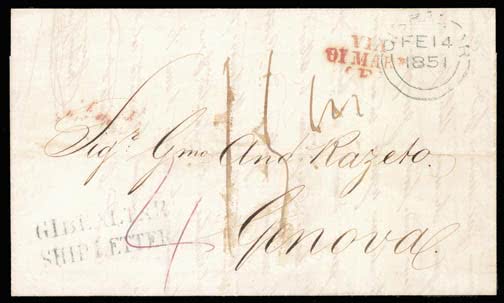 FE 14
1851
VIA
DI MARE
(E)
Sigr. Gmo. And. Razeto.
4
Genova.
GIBRALTAR
SHIP LETTER